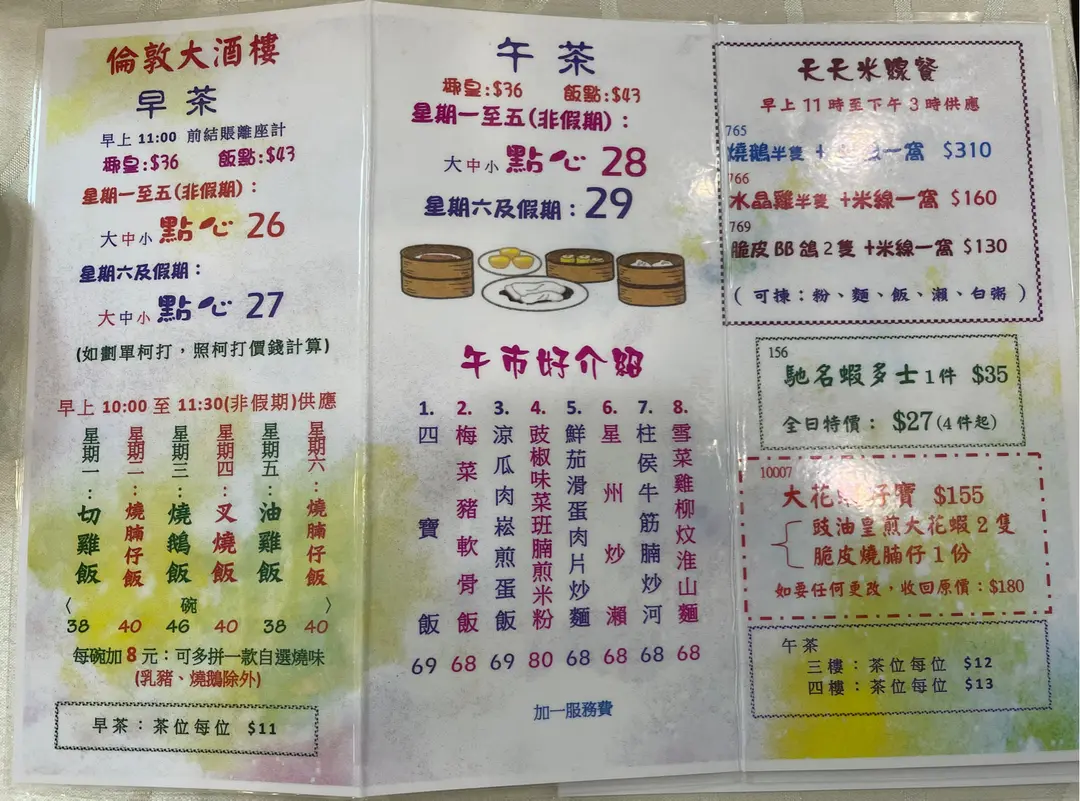 倫敦大酒樓
早茶
早上 11:00 前結賬離座計
郷皇:$36 飯點:$43
星期一至五(非假期):
大中小 點心 26
星期六及假期:
大中小 點心 27
(如劃單柯打,照柯打價錢計算)
早上 10:00 至 11:30(非假期)供應
星期一:切雞飯
星期二:燒腩仔飯
星期三:燒鵝飯
星期四:叉燒飯
星期五:油雞飯
星期六:燒腩仔飯
〈 碗 〉
38 40 46 40 38 40
每碗加 8 元:可多拼一款自選燒味
(乳豬、燒鵝除外)
早茶:茶位每位 $11
午茶
郷皇:$36 飯點:$43
星期一至五(非假期):
大中小 點心 28
星期六及假期:29
午市好介紹
1. 四寶飯
2. 梅菜豬軟骨飯
3. 涼瓜肉崧煎蛋飯
4. 豉椒味菜班腩煎米粉
5. 鮮茄滑蛋肉片炒麵
6. 星州炒瀨
7. 柱侯牛筋腩炒河
8. 雪菜雞柳炆淮山麵
69 68 69 80 68 68 68 68
加一服務費
天天米線餐
早上 11 時至下午 3 時供應
765
燒鵝半隻 + 線一窩 $310
766
水晶雞半隻 +米線一窩 $160
769
脆皮 BB 鴿 2 隻 +米線一窩 $130
(可揀:粉、麵、飯、瀨、白粥)
156
馳名蝦多士 1 件 $35
全日特價: $27(4 件起)
10007
大花 孖寶 $155
豉油皇煎大花蝦 2 隻
脆皮燒腩仔 1 份
如要任何更改,收回原價:$180
午茶
三樓:茶位每位 $12
四樓:茶位每位 $13